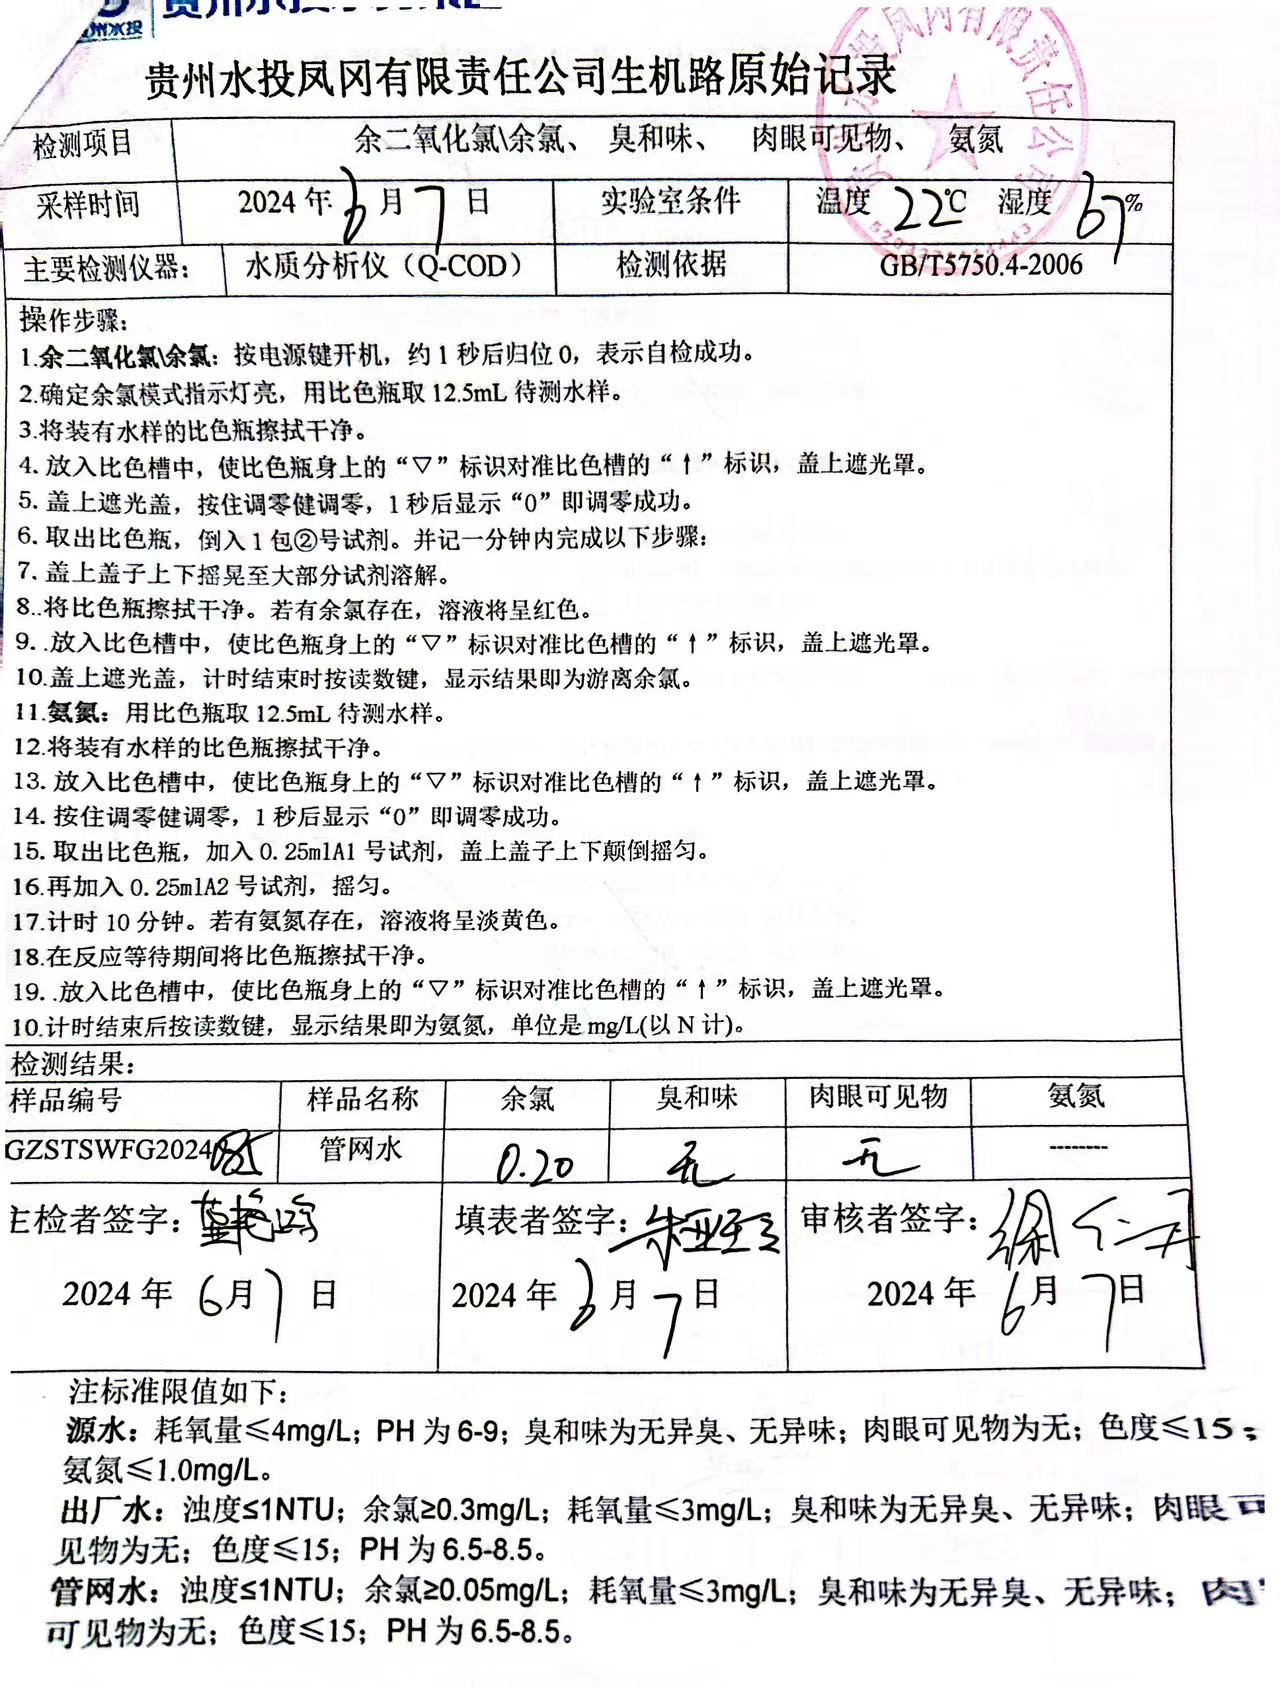 州水投
贵州水投凤冈有限责任公司生机路原始记录
检测项目 余二氧化氯\余氯、 臭和味、 肉眼可见物、 氨氮
采样时间 2024 年 6 月 7 日 实验室条件 温度 22℃ 湿度 67%
主要检测仪器: 水质分析仪（Q-COD） 检测依据 GB/T5750.4-2006
操作步骤:
1.余二氧化氯\余氯: 按电源键开机，约 1 秒后归位 0，表示自检成功。
2.确定余氯模式指示灯亮，用比色瓶取 12.5mL 待测水样。
3.将装有水样的比色瓶擦拭干净。
4. 放入比色槽中，使比色瓶身上的“▽”标识对准比色槽的“↑”标识，盖上遮光罩。
5. 盖上遮光盖，按住调零健调零，1 秒后显示“0”即调零成功。
6. 取出比色瓶，倒入 1 包②号试剂。并记一分钟内完成以下步骤:
7. 盖上盖子上下摇晃至大部分试剂溶解。
8..将比色瓶擦拭干净。若有余氯存在，溶液将呈红色。
9. .放入比色槽中，使比色瓶身上的“▽”标识对准比色槽的“↑”标识，盖上遮光罩。
10.盖上遮光盖，计时结束时按读数键，显示结果即为游离余氯。
11.氨氮: 用比色瓶取 12.5mL 待测水样。
12.将装有水样的比色瓶擦拭干净。
13. 放入比色槽中，使比色瓶身上的“▽”标识对准比色槽的“↑”标识，盖上遮光罩。
14. 按住调零健调零，1 秒后显示“0”即调零成功。
15. 取出比色瓶，加入 0.25mlA1 号试剂，盖上盖子上下颠倒摇匀。
16.再加入 0.25mlA2 号试剂，摇匀。
17.计时 10 分钟。若有氨氮存在，溶液将呈淡黄色。
18.在反应等待期间将比色瓶擦拭干净。
19. .放入比色槽中，使比色瓶身上的“▽”标识对准比色槽的“↑”标识，盖上遮光罩。
10.计时结束后按读数键，显示结果即为氨氮，单位是 mg/L(以 N 计)。
检测结果:
样品编号 样品名称 余氯 臭和味 肉眼可见物 氨氮
GZSTSWFG2024 管网水 0.20 无 无 --------
主检者签字: 填表者签字: 审核者签字:
2024 年 6月 7 日 2024 年 6 月 7 日 2024 年 6 月 7日
注标准限值如下:
源水: 耗氧量≤4mg/L; PH 为 6-9; 臭和味为无异臭、无异味; 肉眼可见物为无; 色度≤15;
氨氮≤1.0mg/L。
出厂水: 浊度≤1NTU; 余氯≥0.3mg/L; 耗氧量≤3mg/L; 臭和味为无异臭、无异味; 肉眼可
见物为无; 色度≤15; PH 为 6.5-8.5。
管网水: 浊度≤1NTU; 余氯≥0.05mg/L; 耗氧量≤3mg/L; 臭和味为无异臭、无异味; 肉
可见物为无; 色度≤15; PH 为 6.5-8.5。